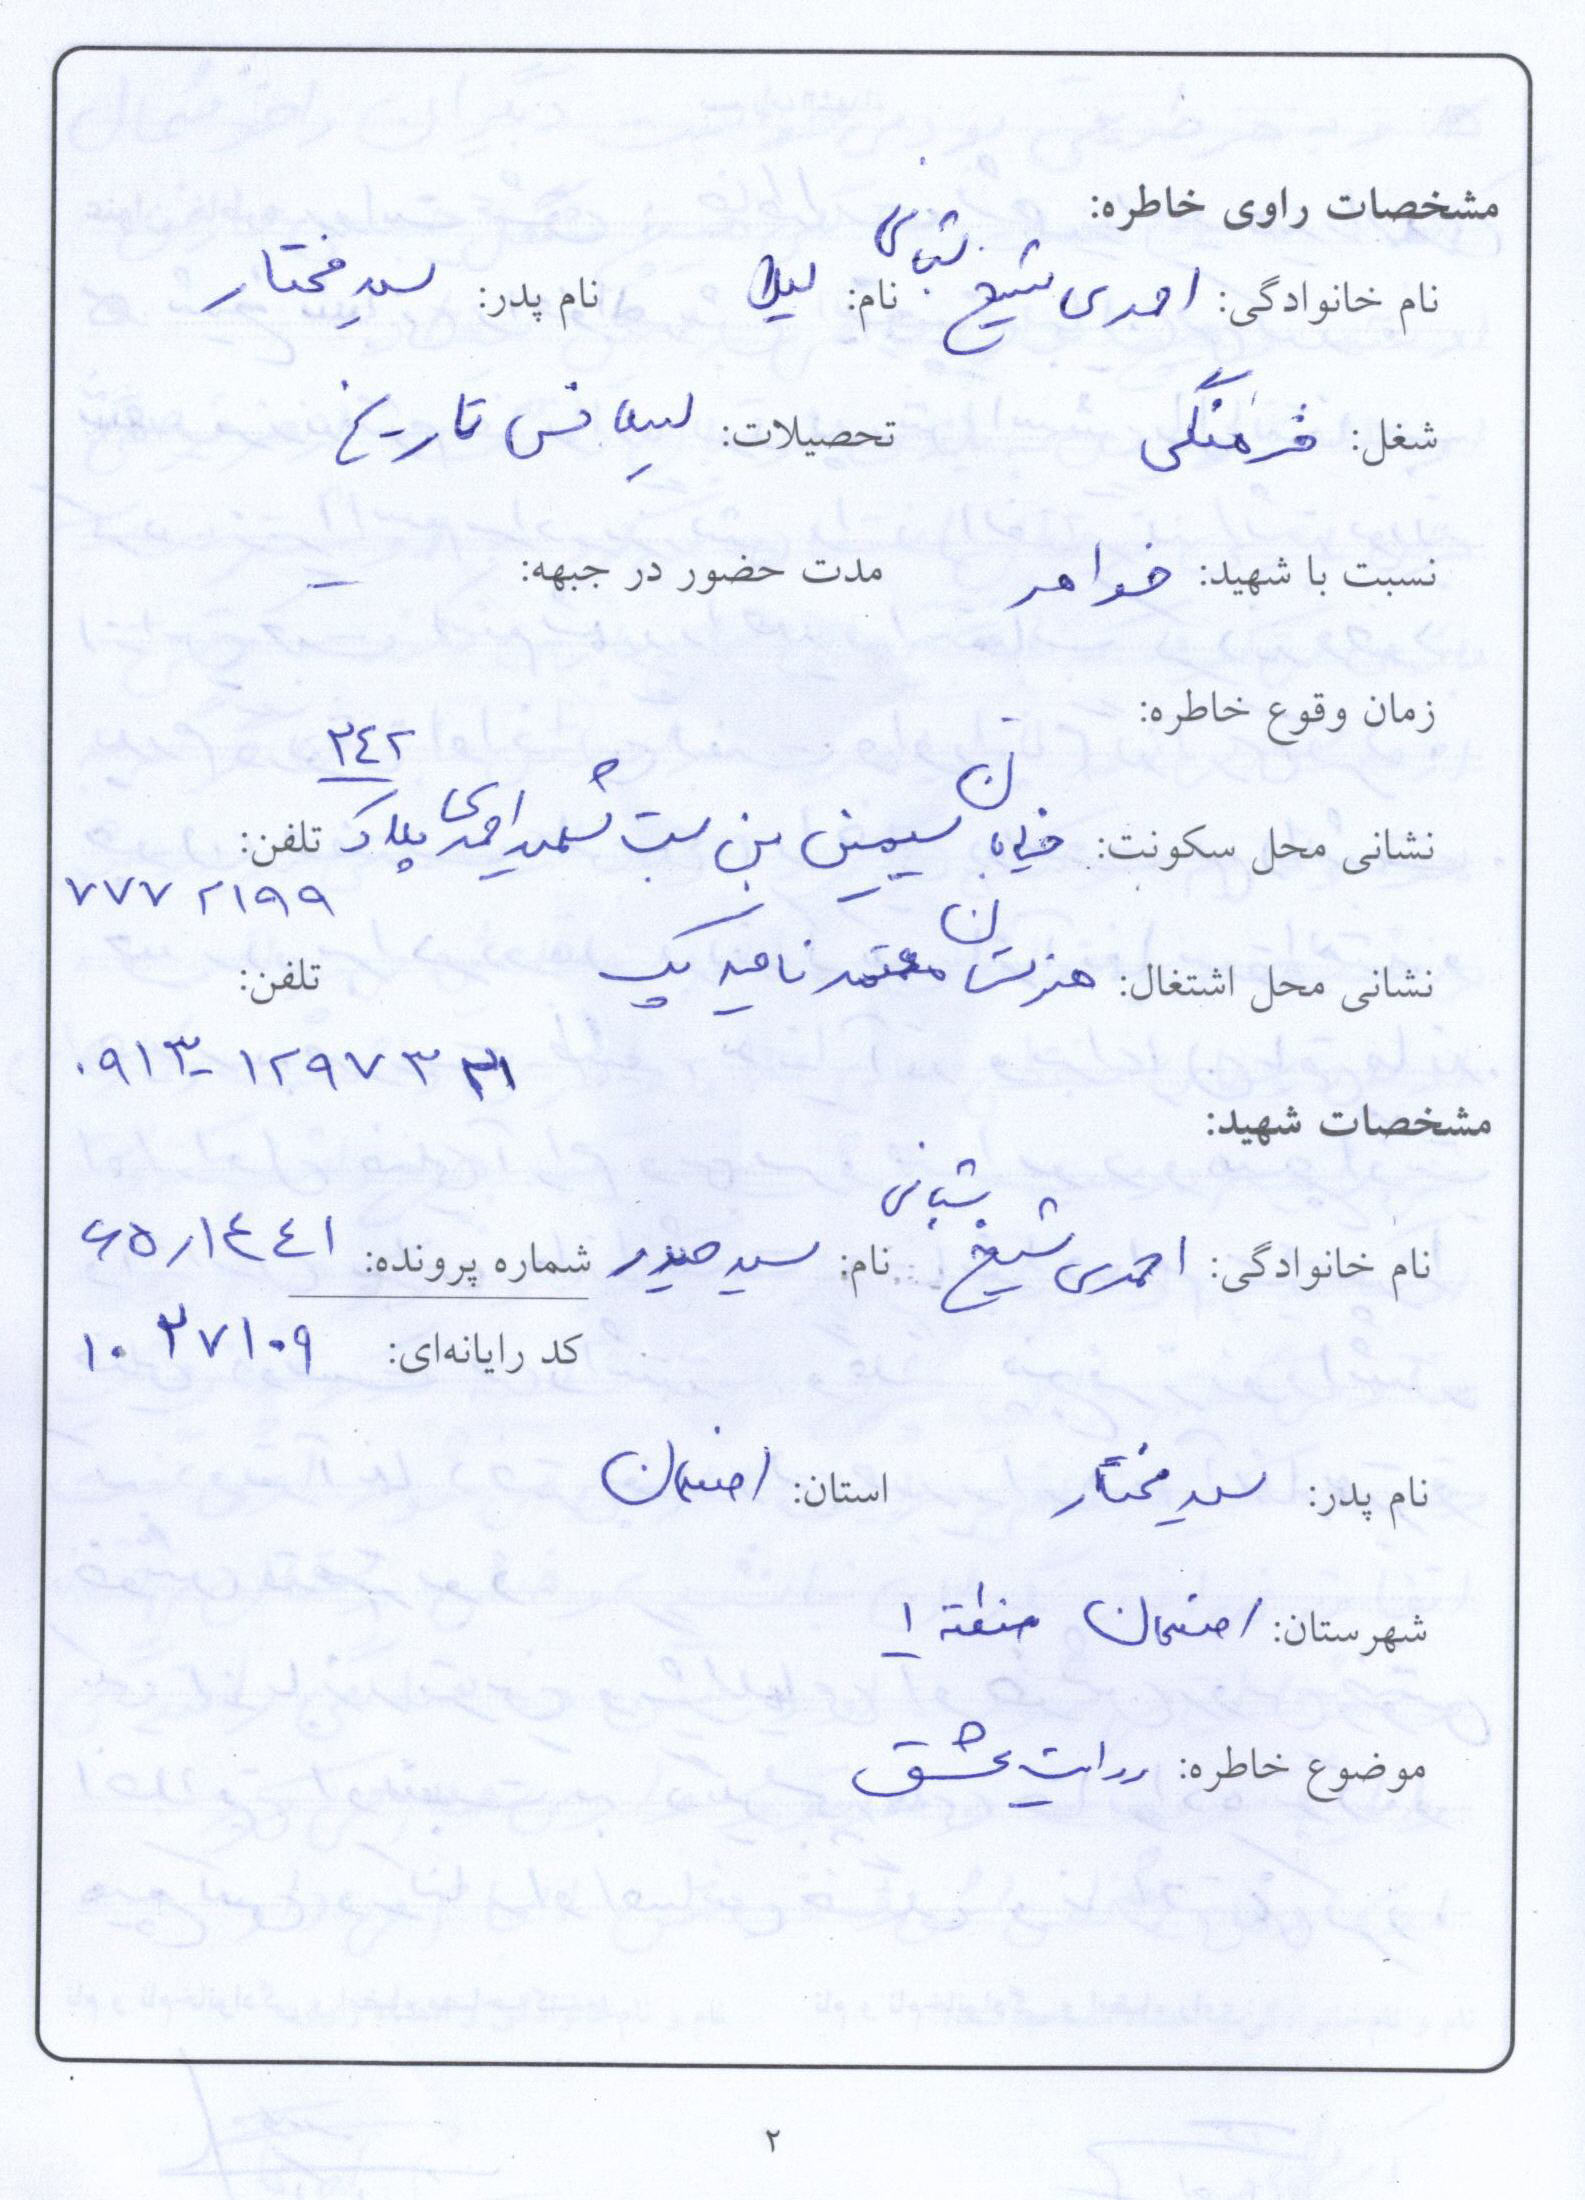 مشخصات راوی خاطره:
نام خانوادگی: احمدی شیخ شبانی نام: لیلا نام پدر: سید مختار
شغل: فرهنگی تحصیلات: لیسانس تاریخ
نسبت با شهید: خواهر مدت حضور در جبهه: –
زمان وقوع خاطره:
نشانی محل سکونت: خیابان سیمین بن بست شهید احمدی پلاک ۲۴۲ تلفن:
۷۷۷۲۱۹۹
نشانی محل اشتغال: هنرستان معتمد ناحیه یک تلفن:
۰۹۱۳-۱۲۹۷۳
مشخصات شهید:
نام خانوادگی: احمدی شیخ شبانی نام: سید حیدر شماره پرونده: ۶۵ر۱۴۴۱
کد رایانه‌ای: ۱۰۲۷۱۰۹
نام پدر: سید مختار استان: اصفهان
شهرستان: اصفهان منطقه ۱
موضوع خاطره: روایت عشق
۲